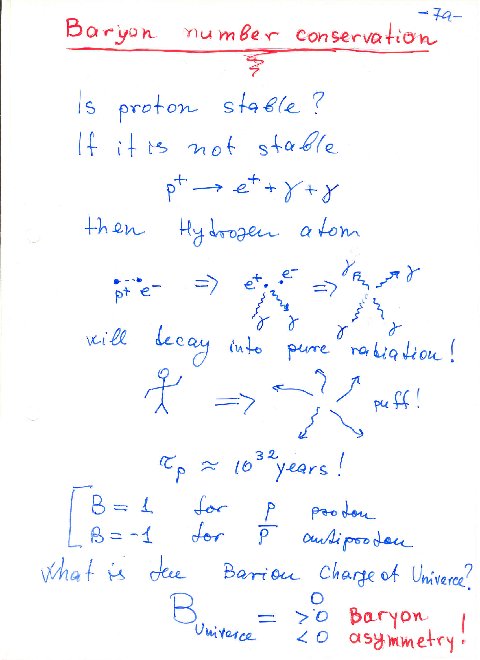 -7a-
Baryon number conservation
Is proton stable?
If it is not stable
p⁺ → e⁺ + γ + γ
then Hydrogen atom
p⁺ e⁻ ⇒ e⁺ e⁻ γ γ ⇒ γ γ γ γ
will decay into pure radiation!
⇒ puff!
τp ≈ 10³² years!
B = 1 for p proton
B = -1 for p̅ antiproton
What is the Barion Charge of Univerce?
0
B Univerce = >0 Baryon
<0 asymmetry!